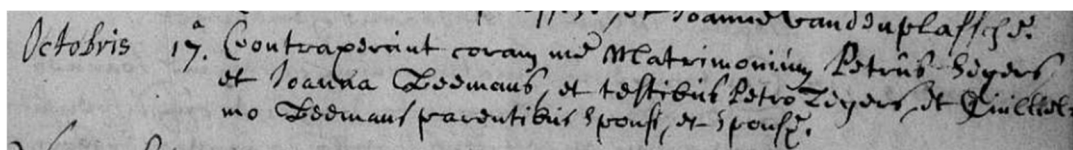 et Joannes Vandenplassche.
Octobris 17ᵃ. Contraxerunt coram me Matrimonium Petrus Segers
et Joanna Beemans, et testibus Petro Zegers, et Guillel=
mo Beemans parentibus sponsi, et sponsę.